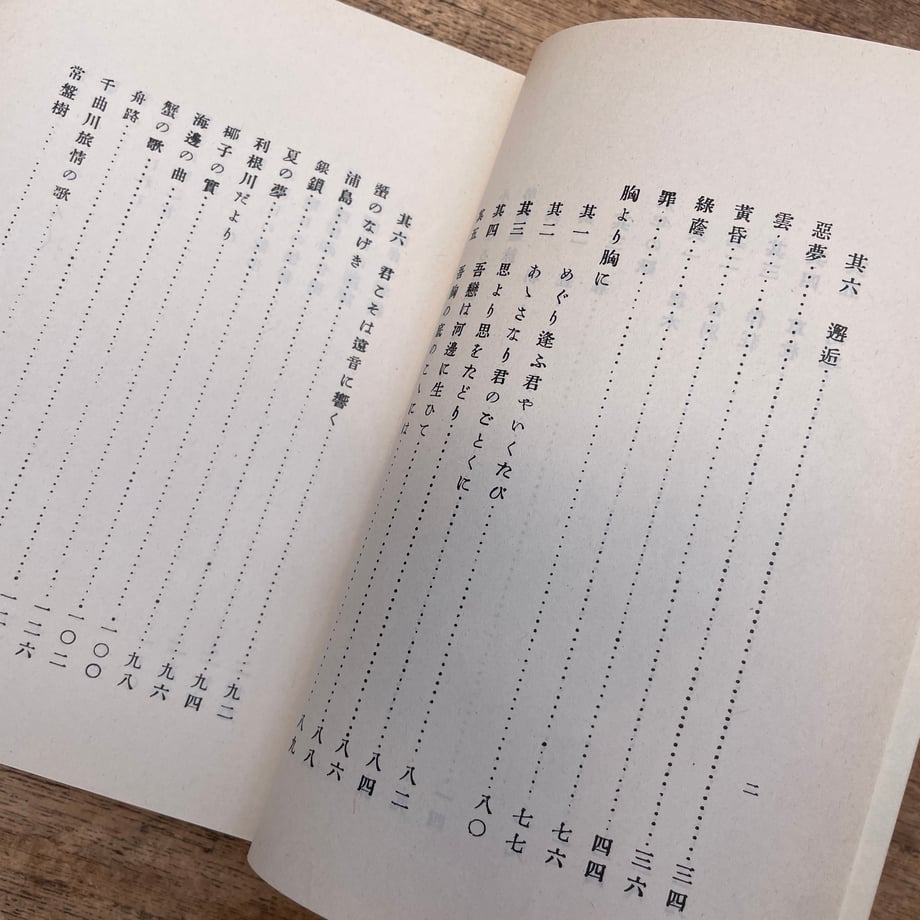 其六 邂逅……三四
惡夢……三六
雲……四四
黃昏……七六
綠蔭……七七
罪……八〇
胸より胸に
其一 めぐり逢ふ君やいくたび……八二
其二 あゝさなり君のごとくに……八四
其三 思より思をたどり……八六
其四 吾戀は河邊に生ひて……八八
其五 吾胸の底のこゝには……八九
二
其六 君こそは遠音に響く……九二
蜑のなげき……九四
浦島……九六
銀鎖……九八
夏の夢……一〇〇
利根川だより……一〇二
椰子の實……一二六
海邊の曲……
蟹の歌……
舟路……
千曲川旅情の歌……
常盤樹……